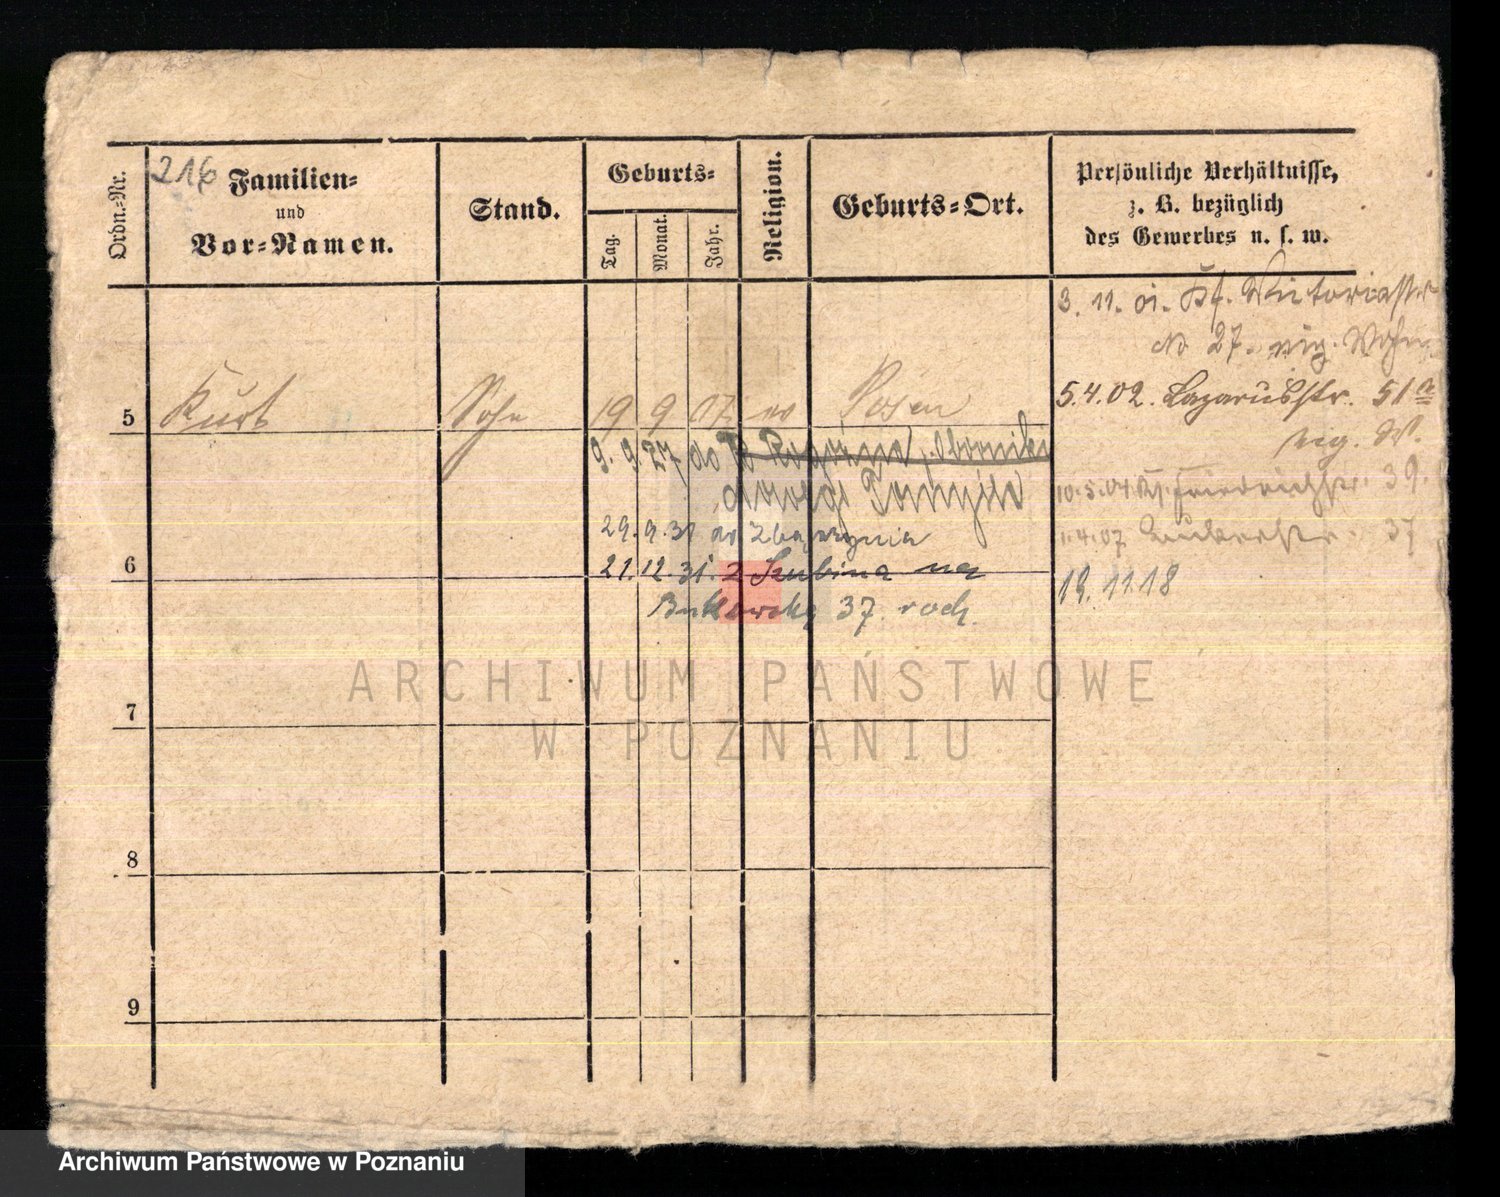 216
Ordn.-Nr.
Familien-
und
Vor-Namen.
Stand.
Geburts-
Tag.
Monat.
Jahr.
Religion.
Geburts-Ort.
Persönliche Verhältnisse,
z. B. bezüglich
des Gewerbes u. s. w.
3. 11. 01. Viktoriastr
No 27. eig. Wohn.
5.4.02. Lazarusstr. 51a
eig. W.
10.5.04 Friedrichstr. 39.
1.4.07 37
19. 11 18
5 Kurt Sohn 19 9 07 Posen
9. 9. 27 do Rogoźna, Oborniki
29. 9. 31 do Zbąszynia
6
21. 12. 31. z Szubina na
Bukowską 37. rodz.
7
8
9
ARCHIWUM PAŃSTWOWE
W POZNANIU
Archiwum Państwowe w Poznaniu